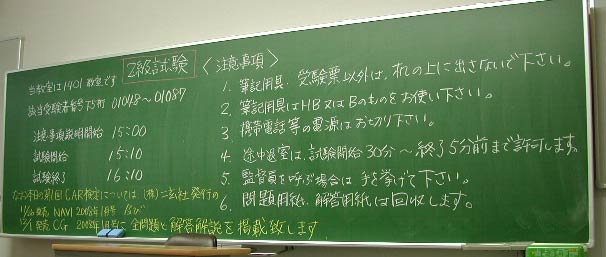 2級試験
当教室は1401教室です
該当受験者番号下5桁 01048〜01087
注意事項説明開始 15:00
試験開始 15:10
試験終了 16:10
なお本日の第1回CAR検定については(株)二玄社発行の
11/26発売 NAVI 2008年1月号 及び
12/1発売 CG 2008年1月号に全問題と解答解説を掲載致します
〈注意事項〉
1. 筆記用具、受験票以外は、机の上に出さないで下さい。
2. 筆記用具はHB又はBのものをお使い下さい。
3. 携帯電話等の電源はお切り下さい。
4. 途中退室は、試験開始30分〜終了5分前まで許可します。
5. 監督員を呼ぶ場合は手を挙げて下さい。
6. 問題用紙、解答用紙は回収します。